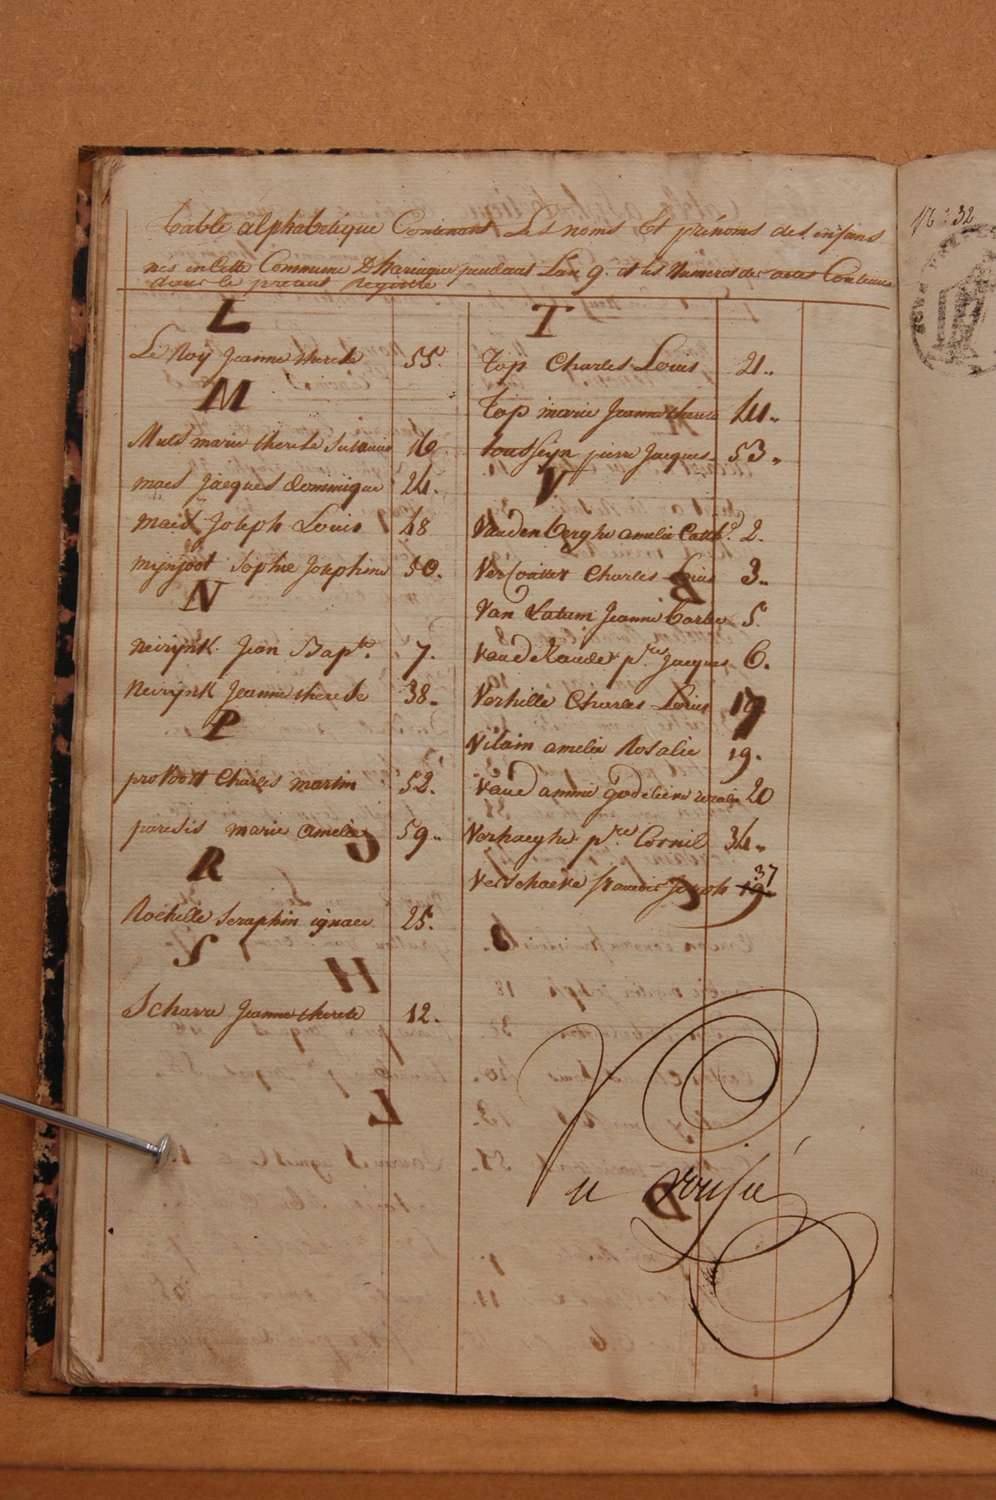 Table alphabetique Contenant Les noms Et prénoms des infans
nés en Cette Commune D'harinque pendant L'an 9. et les Numeros des actes Contenus
dans le présent Registre
L
Le Roy Jeanne therese 55.
M
Muls marie therese 16.
maes Jacques dominique 24.
maes Joseph Louis 48
Mynsoot Sophie Josephine 50.
N
Neirynk Jean Bapte. 7.
Neirynk Jeanne therese 38..
P
provoost Charles martin 52.
paresis marie amelie 59..
R
Rochelle Seraphin ignace 25.
S
Schave Jeanne therese 12.
T
Top Charles Louis 21..
Top marie Jeanne 44..
tousseyn pierre Jacques 53..
V
Vanden Berghe amelie Cathe. 2.
Charles Louis 3..
Van Latum Jeanne Barbe 5.
pre Jacques 6.
Verhille Charles Louis 17
Vilain amelie Rosalie 19.
Vandamme godelieve rosalie 20
Verhaeghe pre Cornil 34..
Verschaeve francois Joseph 19. 37
Vu
No. 32